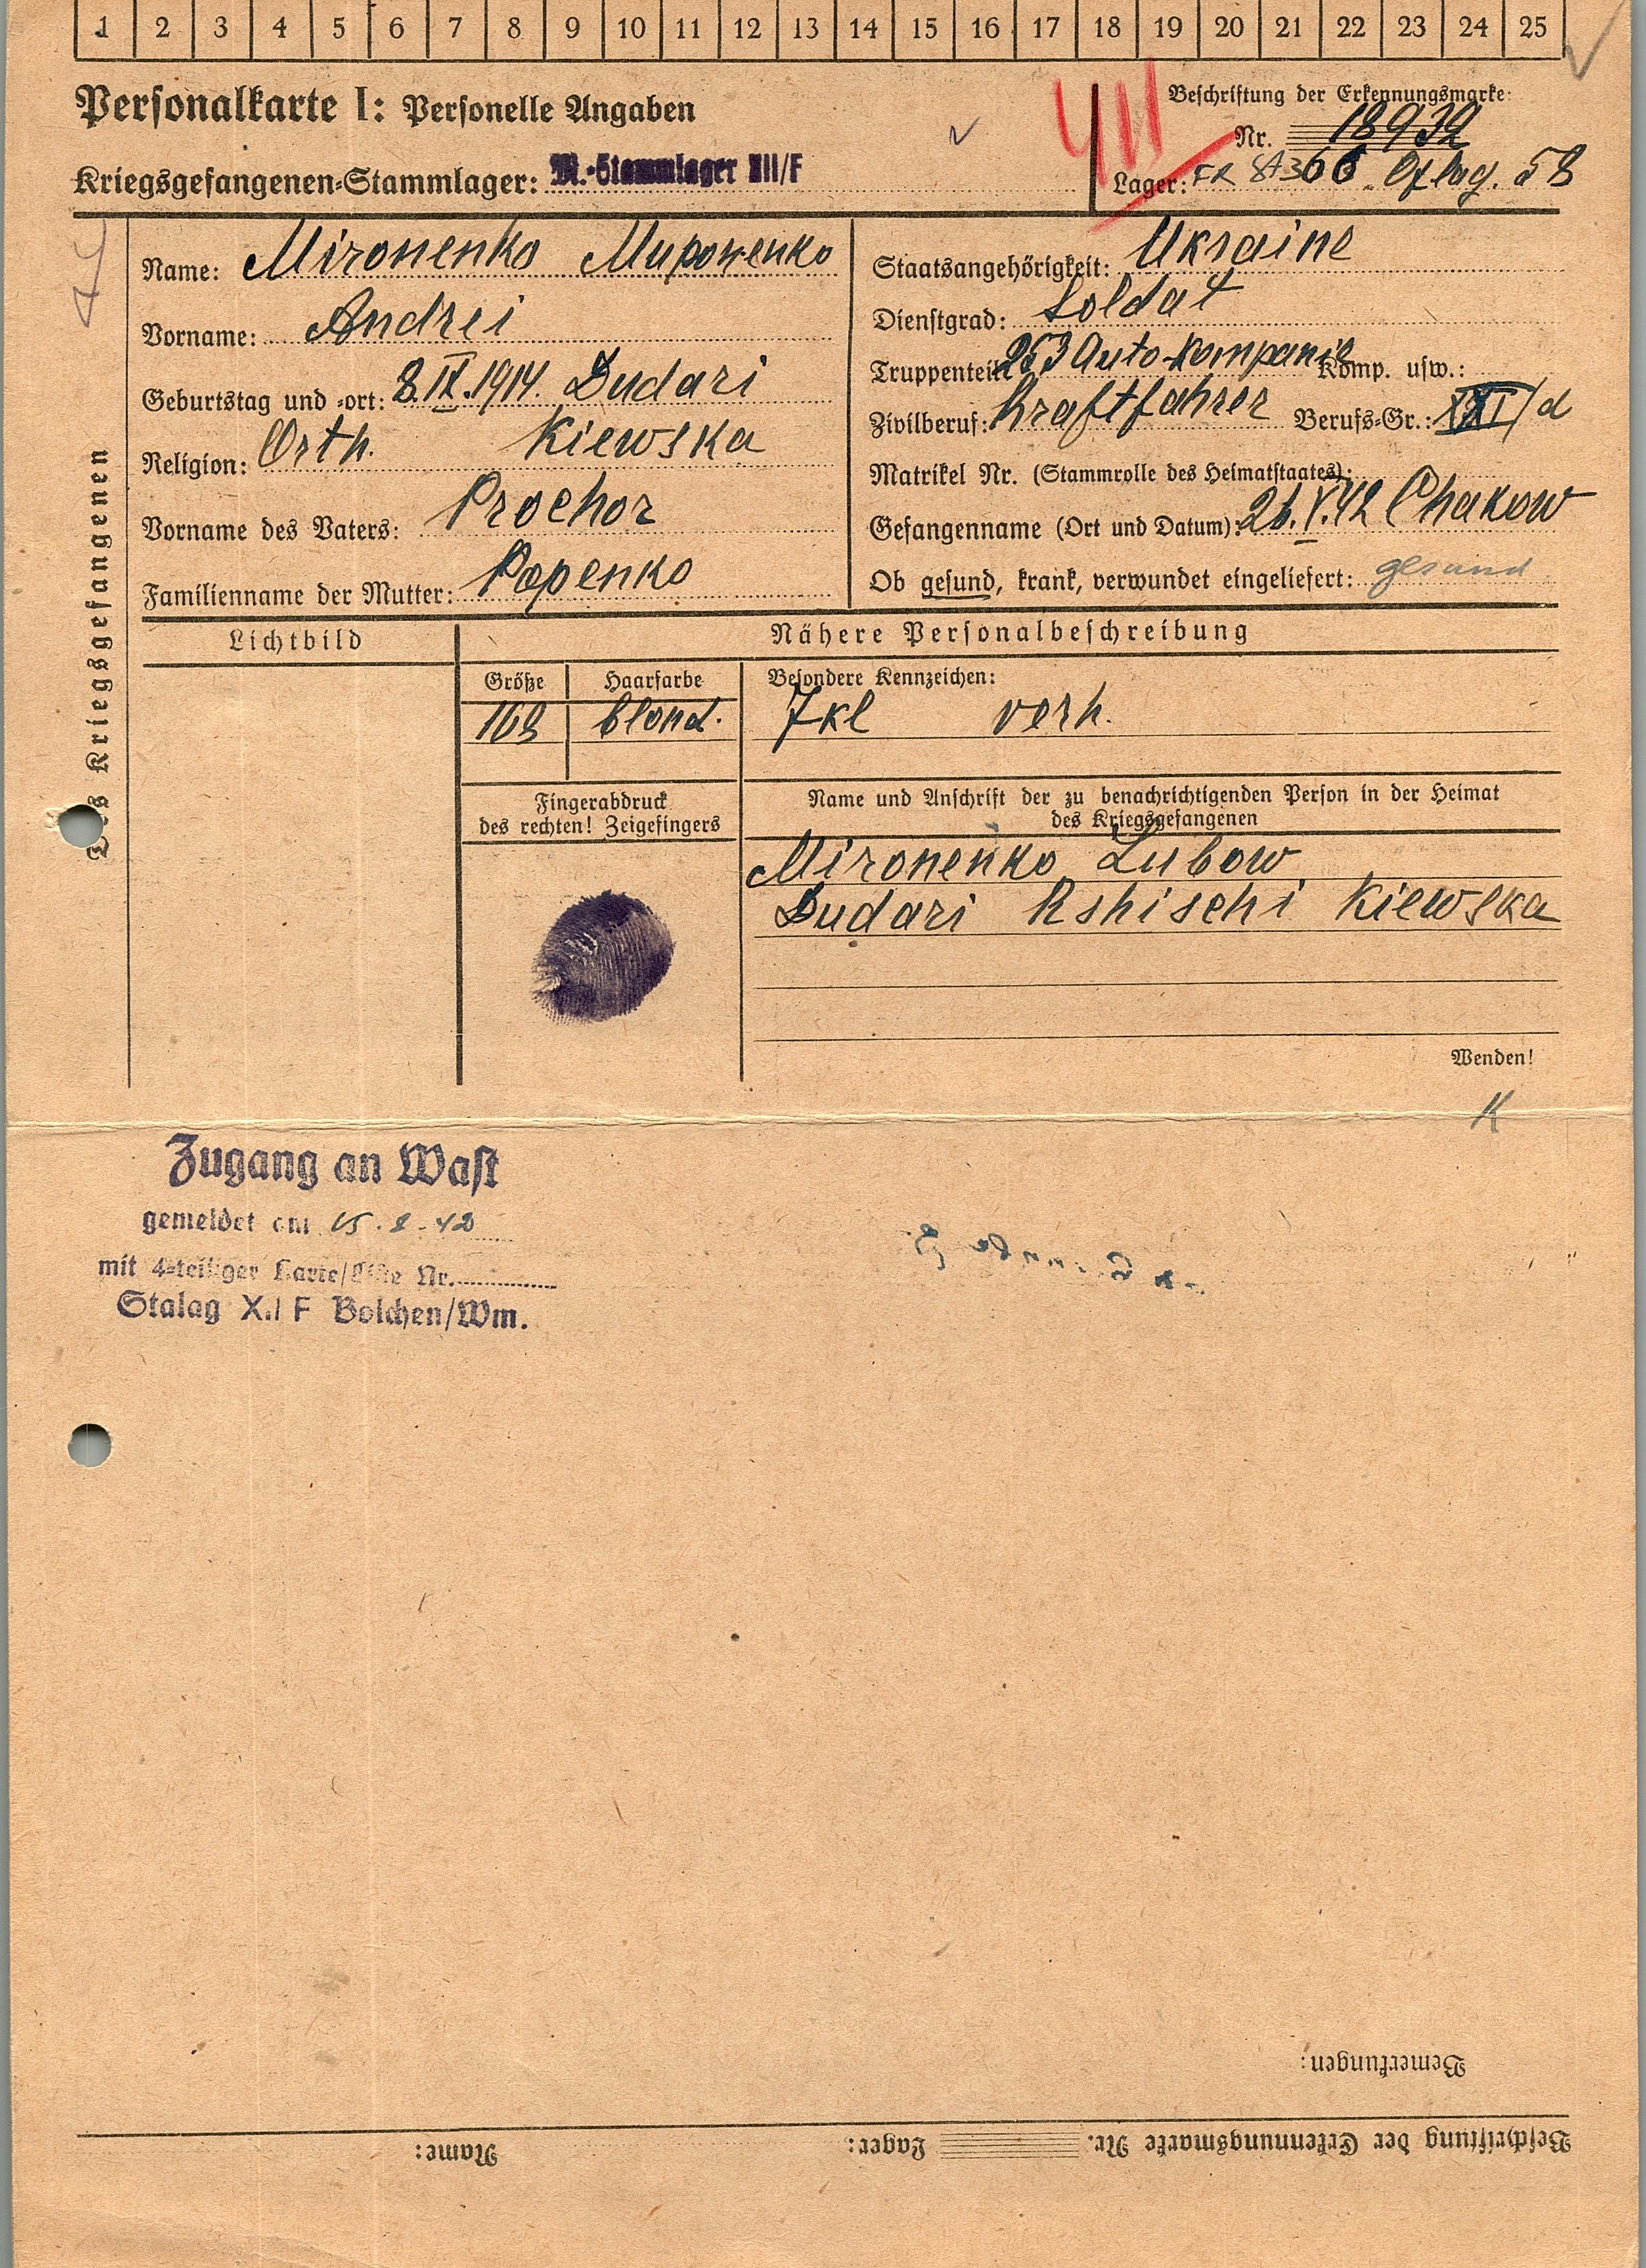 1 2 3 4 5 6 7 8 9 10 11 12 13 14 15 16 17 18 19 20 21 22 23 24 25
Personalkarte I: Personelle Angaben
Beschriftung der Erkennungsmarke:
Nr. 18932
Kriegsgefangenen-Stammlager: M.-Stammlager XII/F
Lager: FR St 366 Oflag. 58
des Kriegsgefangenen
Name: Mironenko Мироненко
Vorname: Andrei
Geburtstag und -ort: 8.IX.1914. Dudari
Religion: Orth. Kiewska
Vorname des Vaters: Prochor
Familienname der Mutter: Popenko
Staatsangehörigkeit: Ukraine
Dienstgrad: Soldat
Truppenteil: 253 Auto-Kompanie Komp. usw.:
Zivilberuf: Kraftfahrer Berufs-Gr.: /d
Matrikel Nr. (Stammrolle des Heimatstaates):
Gefangenname (Ort und Datum): 26.V.42 Chakow
Ob gesund, krank, verwundet eingeliefert: gesund
Lichtbild
Nähere Personalbeschreibung
Größe Haarfarbe Besondere Kennzeichen:
168 blond. 7kl verh.
Fingerabdruck
des rechten! Zeigefingers
Name und Anschrift der zu benachrichtigenden Person in der Heimat
des Kriegsgefangenen
Mironenko Lubow
Dudari Rshischi Kiewska
Wenden!
K
Zugang an Wast
gemeldet am 15.8.42
mit 4-teiliger Karte/Liste Nr.
Stalag XII F Bolchen/Wm.
Bemerkungen:
Beschriftung der Erkennungsmarke Nr. Lager: Name: